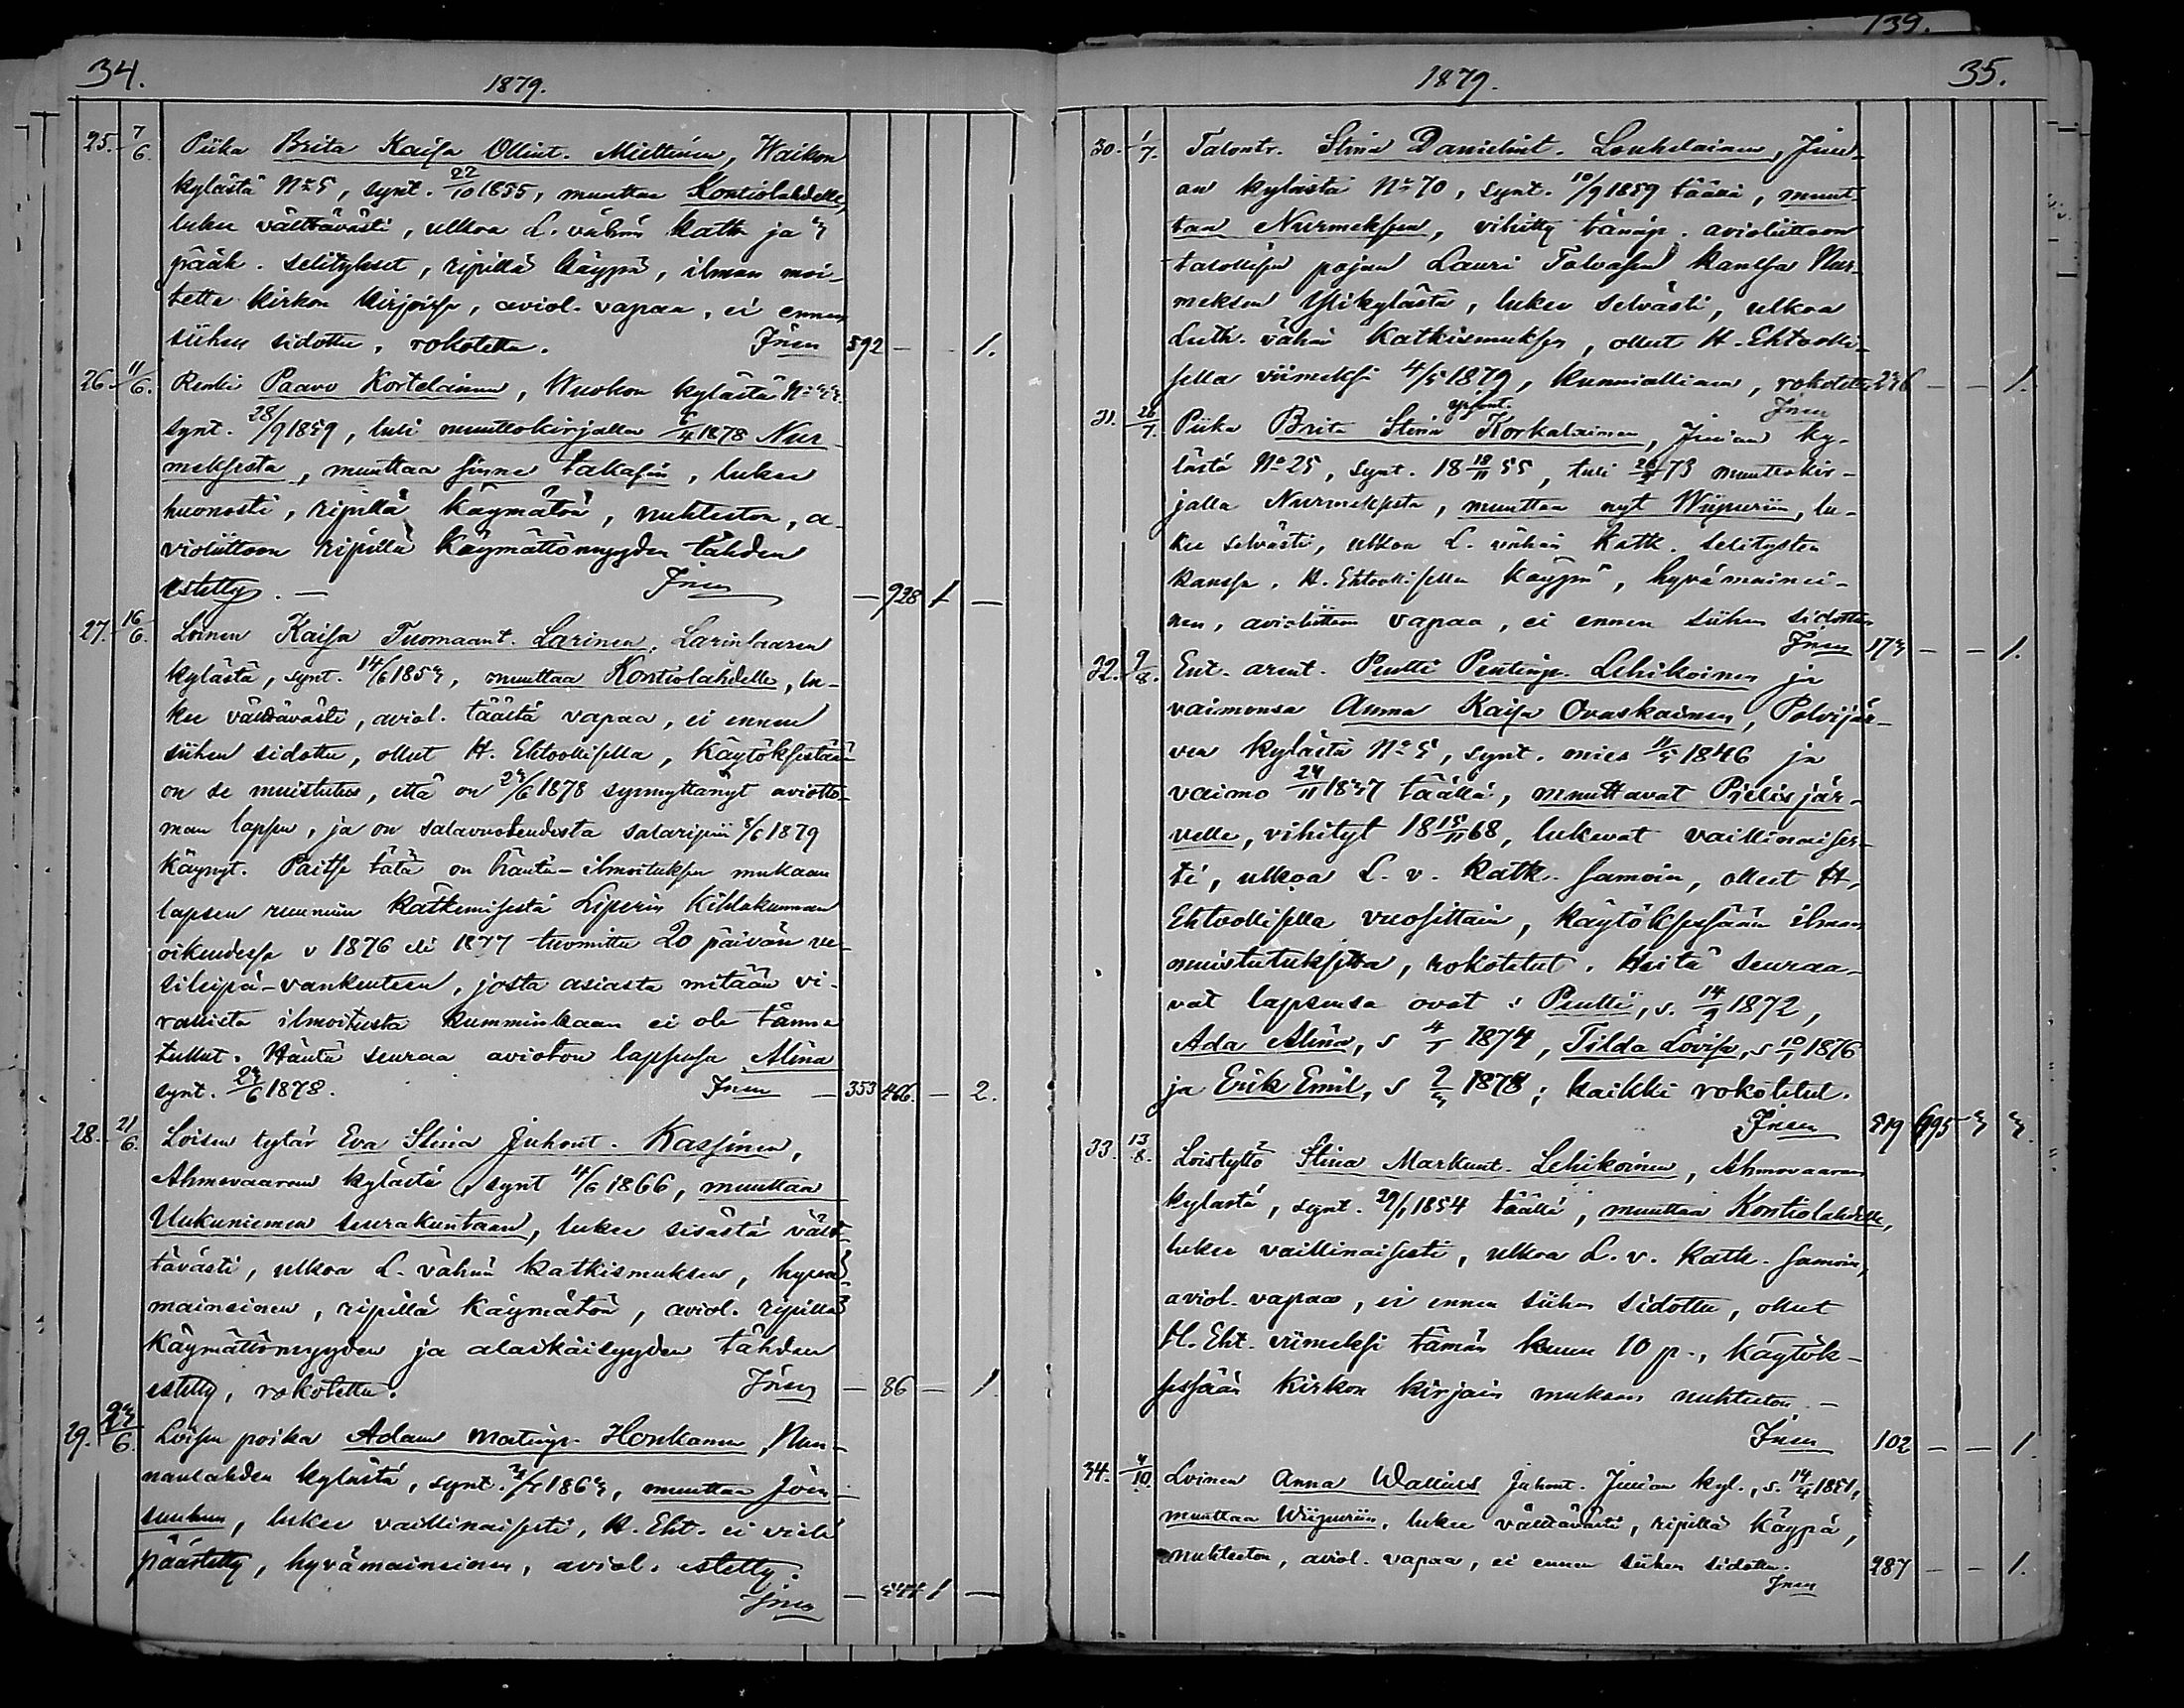 139.
34.
1879.
25. 7/6. Piika Brita Kaisa Ollint. Miettinen, Waikon
kylästä No 5, synt. 22/10 1855, muuttaa Kontiolahdelle,
lukee välttävästi, ulkoa L. vähän katk ja 5
pääk. selitykset, ripillä käypä, ilman moi-
tetta kirkon kirjoissa, aviol. vapaa, ei ennen
siihen sidottu, rokotettu. Jnen 592 — - 1.
26. 11/6. Renki Paavo Kortelainen, Wuokon kylästä No
synt. 28/9 1859, tuli muuttokirjalla 6/4 1878 Nur-
meksesta, muuttaa sinne takasin, lukee
huonosti, ripillä käymätön, nuhteeton, a-
violiittoon ripillä käymättömyyden tähden
estetty. — Jnen — 928 1 —
27. 16/6. Loinen Kaisa Tuomaant. Larinen, Larinsaaren
kylästä, synt. 14/6 1855, muuttaa Kontiolahdelle, lu-
kee välttävästi, aviol. täältä vapaa, ei ennen
siihen sidottu, ollut H. Ehtoollisella, käytöksestään
on se muistutus, että on 25/6 1878 synnyttänyt aviotto-
man lapsen, ja on salavuoteudesta salaripin 8/6 1879
käynyt. Paitse tätä on häntä ilmoituksen mukaan
lapsen ruumiin kätkemisestä Liperin kihlakunnan
oikeudessa v 1876 eli 1877 tuomittu 20 päivän ve-
sileipä-vankeuteen, josta asiasta mitään vi-
rallista ilmoitusta kumminkaan ei ole tänne
tullut. Häntä seuraa avioton lapsensa Alina
synt. 25/6 1878. Jnen — 353 466. — 2.
28. 21/6. Loisen tytär Eva Stina Juhont. Kassinen,
Ahmovaaran kylästä, synt 4/6 1866, muuttaa
Uukuniemen seurakuntaan, lukee sisästä vält-
tävästi, ulkoa L. vähän katkismuksen, hyvä-
maineinen, ripillä käymätön, aviol. ripillä
käymättömyyden ja alaikäisyyden tähden
estetty, rokotettu. Jnen — 86 — 1.
29. 25/6. Loisen poika Adam Matinp. Honkanen, Nun-
nanlahden kylästä, synt. muuttaa Joen-
suuhun, lukee vaillinaisesti, H. Eht. ei vielä
päästetty, hyvämaineinen, aviol. estetty.
Jnen — 1 —
1879.
35.
30. 1/7. Talontr. Stina Danielint. Louhelainen, Juu-
an kylästä No 70, synt. 10/9 1859 täällä, muut-
taa Nurmeksen, vihitty tänäp. avioliittoon
talollisen pojan Lauri Tolvasen kanssa Nur-
meksen Ylikylästä, lukee selvästi, ulkoa
Luth. vähän Katkismuksen, ollut H. Ehtoolli-
sella viimeksi 4/5 1879, kunniallinen, rokotettu 276 — — 1.
Jnen
31. 26/7. Piika Brita Stina Korkalainen, Juuan ky-
lästä No 25, synt. 18 18/11 55, tuli 26/2 78 muuttokir-
jalla Nurmeksesta, muuttaa nyt Wiipuriin, lu-
kee selvästi, ulkoa L. vähän katk. selitysten
kanssa, H. Ehtoollisella käypä, hyvämainei-
nen, avioliittoon vapaa, ei ennen siihen sidottu
Jnen 175 — — 1.
32. 9/8. Ent. arent. Pentti Pentinp. Lehikoinen ja
vaimonsa Anna Kaisa Ovaskainen, Polvijär-
ven kylästä No 5, synt. mies 11/5 1846 ja
vaimo 24/11 1847 täällä, muuttavat Pielisjär-
velle, vihityt 18 15/11 68, lukevat vaillinaises-
ti, ulkoa L. v. katk. samoin, olleet H.
Ehtoollisella vuosittain, käytöksessään ilman
muistutuksitta, rokotetut. Heitä seuraa-
vat lapsensa ovat: Pentti, s. 14/9 1872,
Ada Alina, s 4/5 1874, Tilda Lovisa, s 10/1 1876
ja Erik Emil, s 9/5 1878; kaikki rokotetut.
Jnen 519 695 3 3.
33. 13/8. Loistyttö Stina Markunt. Lehikoinen, Ahmovaaran
kylästä, synt. 29/1 1854 täällä, muuttaa Kontiolahdelle,
lukee vaillinaisesti, ulkoa L. v. katk. samoin,
aviol. vapaa, ei ennen siihen sidottu, ollut
H. Eht. viimeksi tämän kuun 10 p., käytök-
sessään kirkon kirjain mukaan nuhteeton. —
Jnen 102 — — 1
34. 4/10. Loinen Anna Wallius Juhont. Juuan kyl., s. 14/4 1851,
muuttaa Wiipuriin, lukee välttävästi, ripillä käypä,
nuhteeton, aviol. vapaa, ei ennen siihen sidottu.
Jnen 287 — — 1.